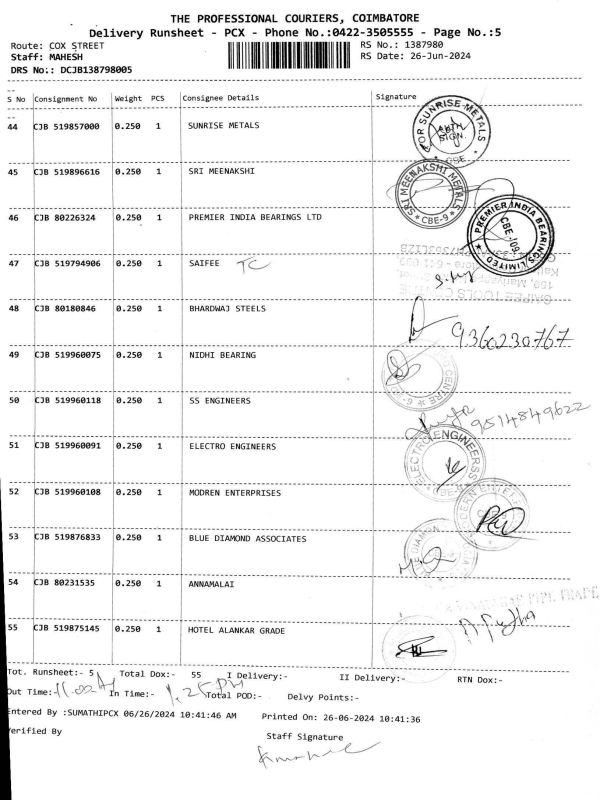 THE PROFESSIONAL COURIERS, COIMBATORE
Delivery Runsheet - PCX - Phone No.:0422-3505555 - Page No.:5
Route: COX STREET RS No.: 1387980
Staff: MAHESH RS Date: 26-Jun-2024
DRS No.: DCJB138798005
S No Consignment No Weight PCS Consignee Details Signature
44 CJB 519857000 0.250 1 SUNRISE METALS
FOR SUNRISE METALS
AUTH. SIGN.
CBE
45 CJB 519896616 0.250 1 SRI MEENAKSHI
SRI MEENAKSHI METALS
CBE-9
46 CJB 80226324 0.250 1 PREMIER INDIA BEARINGS LTD
PREMIER INDIA BEARINGS LIMITED
CBE-109
47 CJB 519794906 0.250 1 SAIFEE TC
48 CJB 80180846 0.250 1 BHARDWAJ STEELS
9360230767
49 CJB 519960075 0.250 1 NIDHI BEARING
50 CJB 519960118 0.250 1 SS ENGINEERS
9514849622
51 CJB 519960091 0.250 1 ELECTRO ENGINEERS
ELECTRO ENGINEERSS
52 CJB 519960108 0.250 1 MODREN ENTERPRISES
53 CJB 519876833 0.250 1 BLUE DIAMOND ASSOCIATES
54 CJB 80231535 0.250 1 ANNAMALAI
55 CJB 519875145 0.250 1 HOTEL ALANKAR GRADE
Tot. Runsheet:- 5 Total Dox:- 55 I Delivery:- II Delivery:- RTN Dox:-
Out Time:- 11.02 AM In Time:- 1.25 PM Total POD:- Delvy Points:-
Entered By :SUMATHIPCX 06/26/2024 10:41:46 AM Printed On: 26-06-2024 10:41:36
Verified By Staff Signature